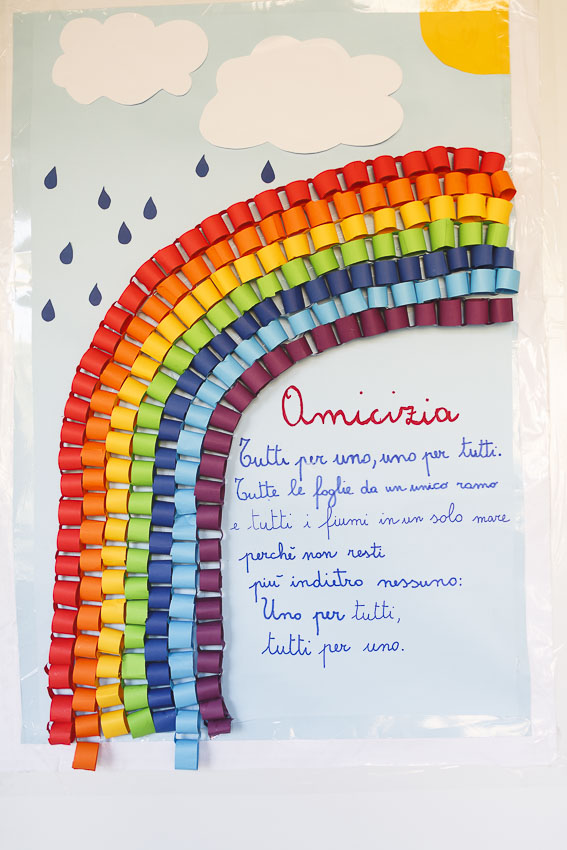 Amicizia
Tutti per uno, uno per tutti.
Tutte le foglie da un unico ramo
e tutti i fiumi in un solo mare
perchè non resti
più indietro nessuno:
Uno per tutti,
tutti per uno.